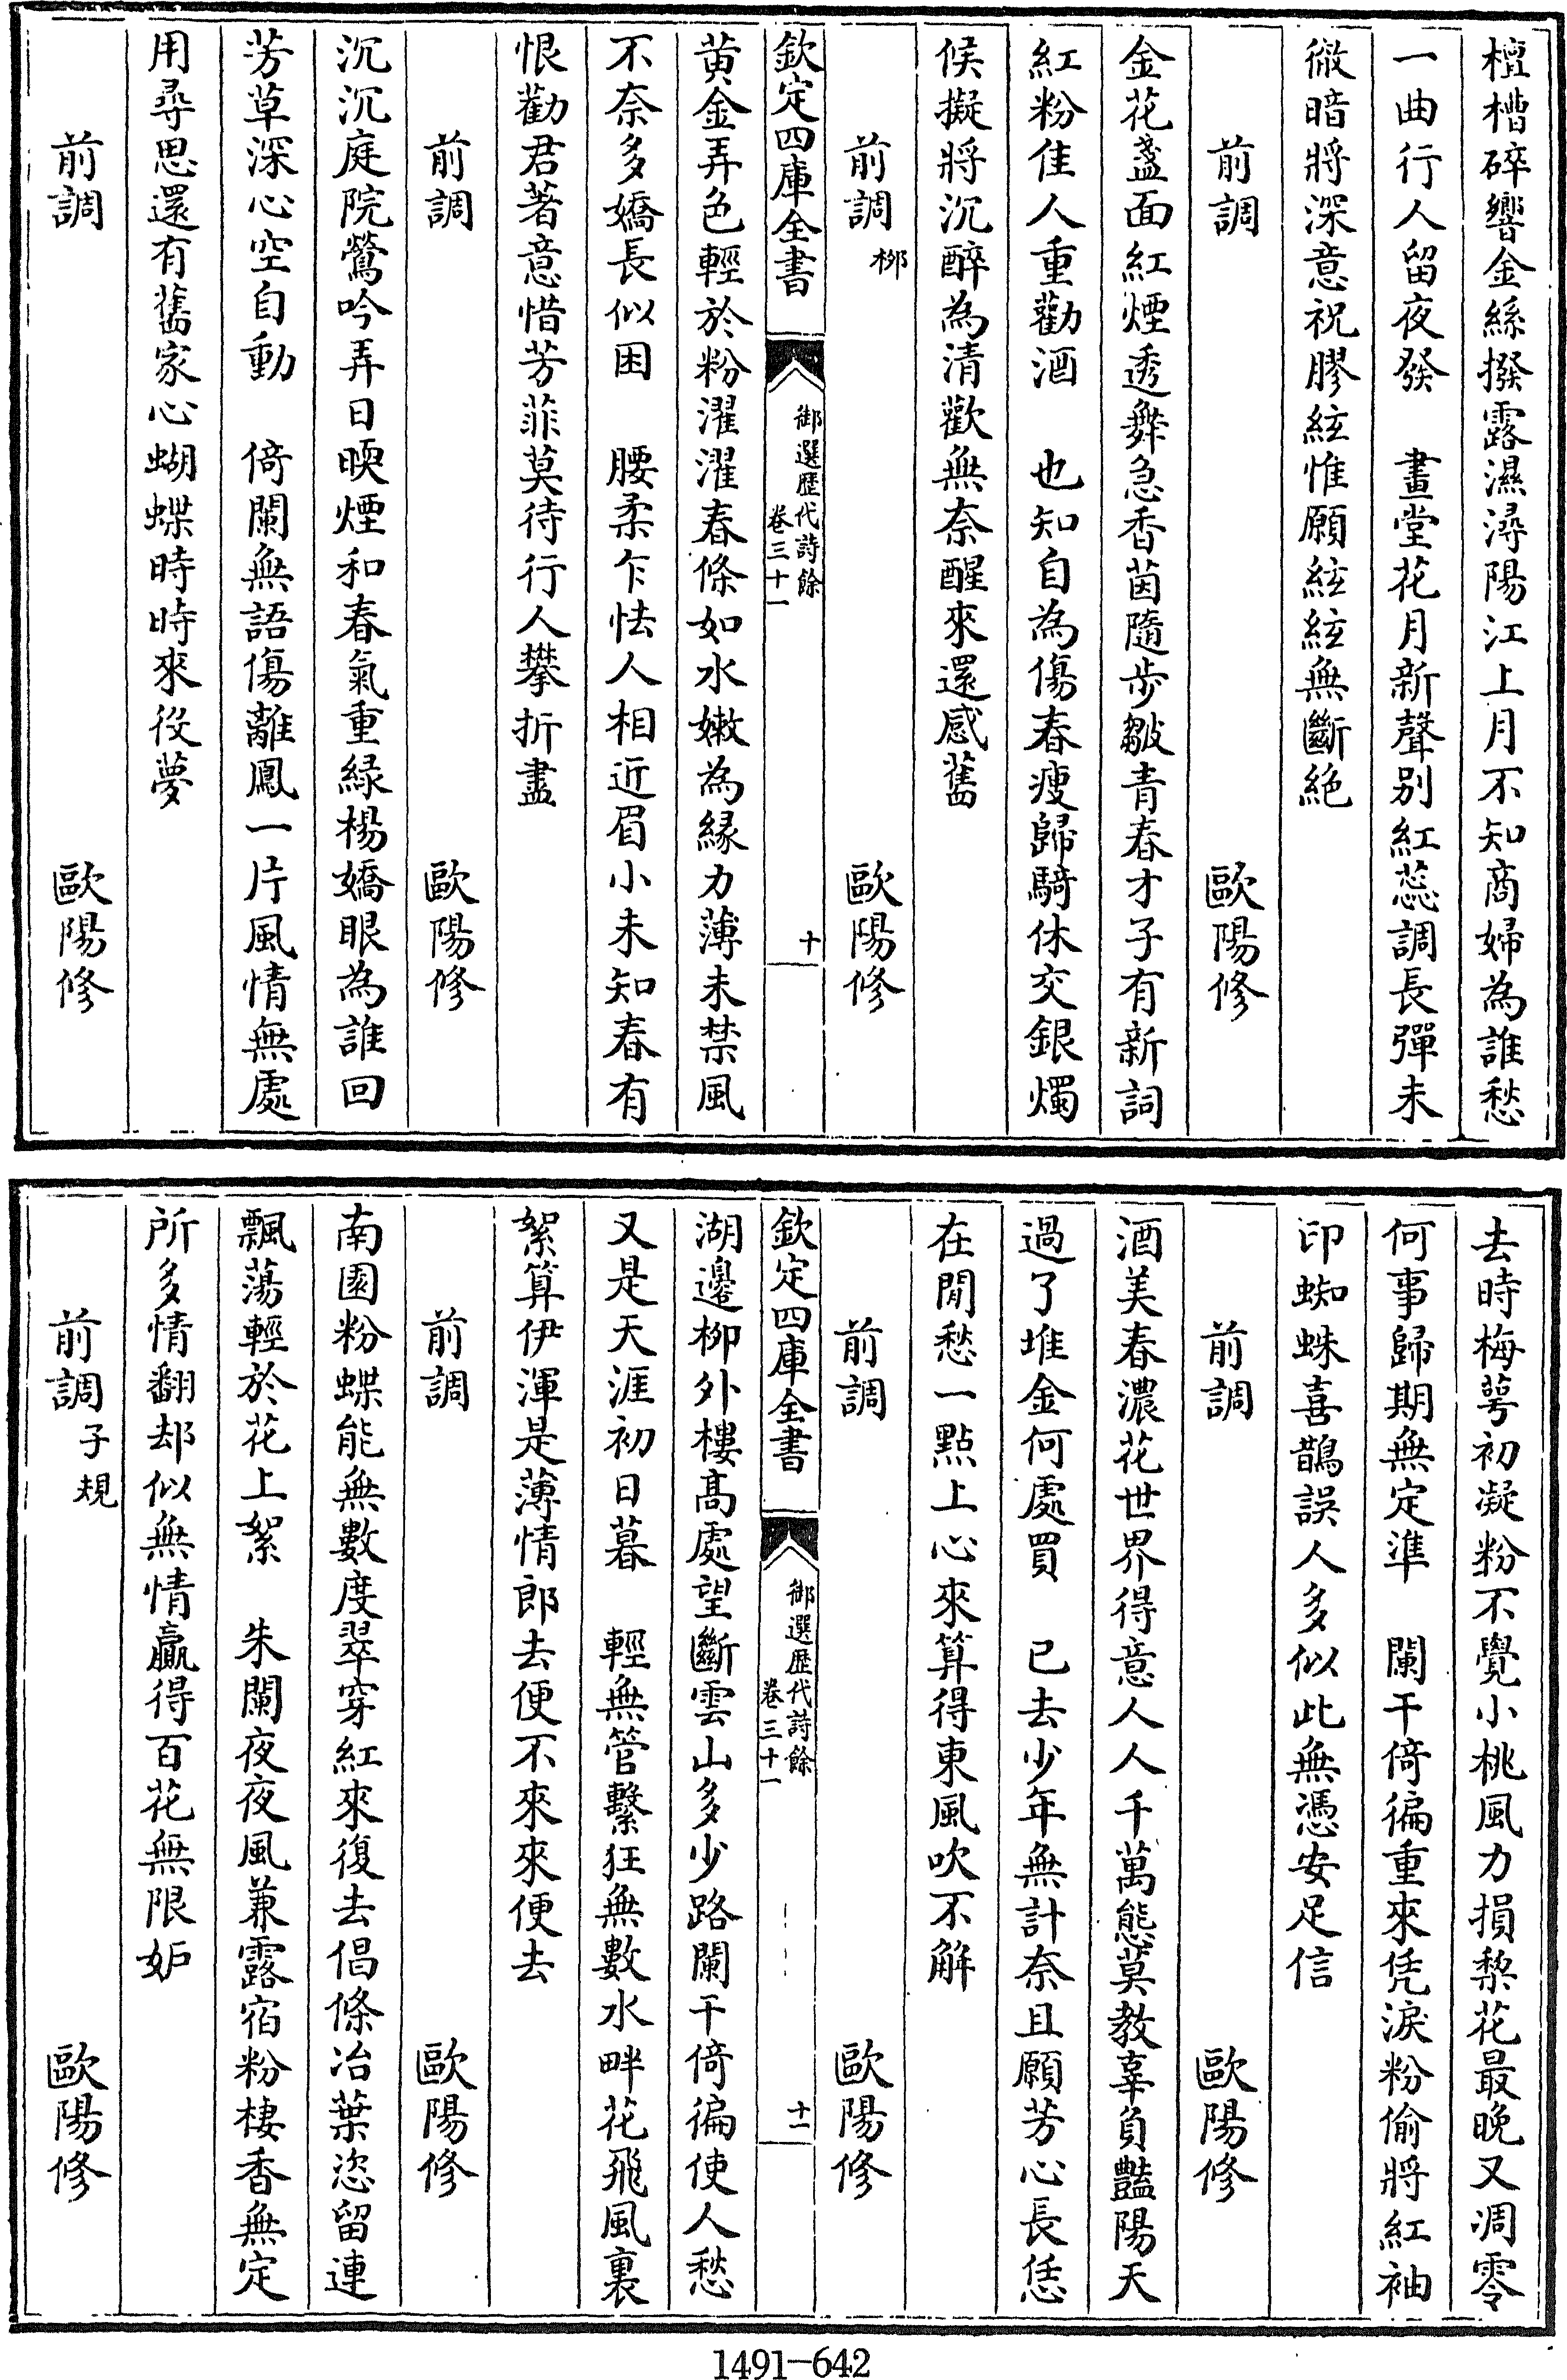 檀槽碎響金絲撥露濕潯陽江上月不知商婦為誰愁
一曲行人留夜發　畫堂花月新聲别紅蕊調長彈未
徹暗將深意祝膠絃惟願絃絃無斷絶
前調　歐陽修
金花盞面紅煙透舞急香茵隨歩皺青春才子有新詞
紅粉佳人重勸酒　也知自為傷春瘦歸騎休交銀燭
候擬將沉醉為清歡無奈醒來還感舊
前調 栁　歐陽修
欽定四庫全書
御選歴代詩餘
卷三十一
十
黄金弄色輕於粉濯濯春條如水嫩為緣力薄未禁風
不奈多嬌長似困　腰柔乍怯人相近眉小未知春有
恨勸君著意惜芳菲莫待行人攀折盡
前調　歐陽修
沉沉庭院鶯吟弄日暖煙和春氣重緑楊嬌眼為誰回
芳草深心空自動　倚闌無語傷離鳳一片風情無處
用尋思還有舊家心蝴蝶時時來役夢
前調　歐陽修
去時梅萼初凝粉不覺小桃風力損棃花最晩又凋零
何事歸期無定準　闌干倚徧重來凭淚粉偷將紅袖
印蜘蛛喜鵲誤人多似此無憑安足信
前調　歐陽修
酒美春濃花世界得意人人千萬態莫教辜負豔陽天
過了堆金何處買　已去少年無計奈且願芳心長恁
在閒愁一點上心來算得東風吹不解
前調　歐陽修
欽定四庫全書
御選歴代詩餘
卷三十一
十一
湖邊栁外樓髙處望斷雲山多少路闌干倚徧使人愁
又是天涯初日暮　輕無管繫狂無數水畔花飛風裏
絮算伊渾是薄情郎去便不來來便去
前調　歐陽修
南園粉蝶能無數度翠穿紅來復去倡條冶葉恣留連
飄蕩輕於花上絮　朱闌夜夜風兼露宿粉棲香無定
所多情翻却似無情贏得百花無限妒
前調 子規　歐陽修
1491-642